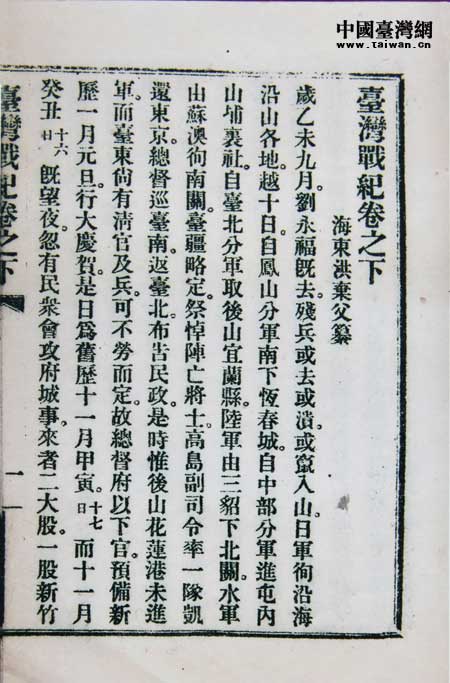 中國臺灣網
www.taiwan.cn
臺灣戰紀卷之下
海東洪棄父纂
歲乙未九月。劉永福既去。殘兵或去或潰。或竄入山。日軍徇沿海
沿山各地。越十日。自鳳山分軍南下恆春城。自中部分軍進屯內
山埔裏社。自臺北分軍取後山宜蘭縣。陸軍由三貂下北關。水軍
由蘇澳徇南關。臺疆略定。祭悼陣亡將士。高島副司令率一隊凱
還東京。總督巡臺南。返臺北布告民政。是時惟後山花蓮港未進
軍。而臺東尚有清官及兵。可不勞而定。故總督府以下官。預備新
歷一月元旦。行大慶賀。是日爲舊歷十一月甲寅。十七日而十一月
癸丑十六日既望夜。忽有民衆會攻府城事。來者二大股。一股新竹
臺灣戰紀卷之下
一